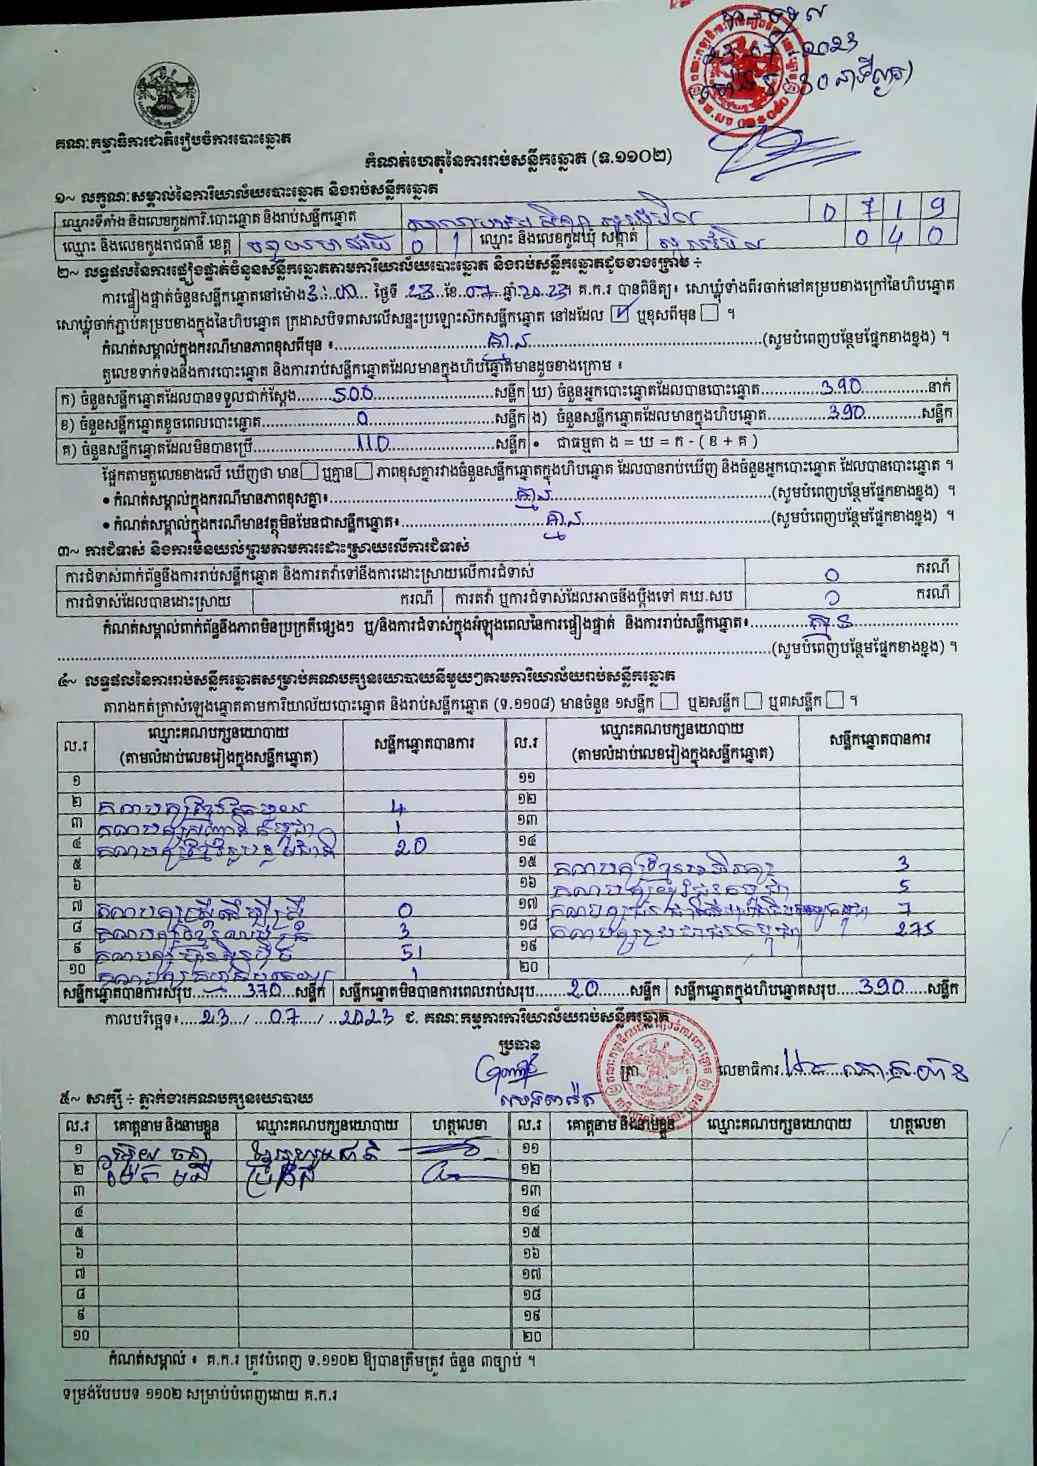 23-07-2023
គណៈកម្មាធិការជាតិរៀបចំការបោះឆ្នោត
កំណត់ហេតុនៃការរាប់សន្លឹកឆ្នោត (ទ.១១០២)
១~ លក្ខណៈសម្គាល់នៃការិយាល័យបោះឆ្នោត និងរាប់សន្លឹកឆ្នោត
ឈ្មោះទីតាំង និងលេខកូដការិ.បោះឆ្នោត និងរាប់សន្លឹកឆ្នោត 0 7 1 9
ឈ្មោះ និងលេខកូដរាជធានី ខេត្ត បន្ទាយមានជ័យ 0 1 ឈ្មោះ និងលេខកូដឃុំ សង្កាត់ 0 4 0
២~ លទ្ធផលនៃការផ្ទៀងផ្ទាត់ចំនួនសន្លឹកឆ្នោតតាមការិយាល័យបោះឆ្នោត និងរាប់សន្លឹកឆ្នោតដូចខាងក្រោម ÷
ការផ្ទៀងផ្ទាត់ចំនួនសន្លឹកឆ្នោតនៅម៉ោង 3:00 ថ្ងៃទី 23 ខែ 07 ឆ្នាំ 2023។ គ.ក.រ បានពិនិត្យ៖ សោឃ្លុំទាំងពីរចាក់នៅគម្របខាងក្រៅនៃហិបឆ្នោត
សោឃ្លុំចាក់ភ្ជាប់គម្របខាងក្នុងនៃហិបឆ្នោត ក្រដាសបិទពាសលើសន្ទះប្រឡោះស៊កសន្លឹកឆ្នោត នៅដដែល ☑ ឬខុសពីមុន ☐ ។
កំណត់សម្គាល់ក្នុងករណីមានភាពខុសពីមុន ៖ គ្មាន (សូមបំពេញបន្ថែមផ្នែកខាងខ្នង) ។
តួលេខទាក់ទងនឹងការបោះឆ្នោត និងការរាប់សន្លឹកឆ្នោតដែលមានក្នុងហិបឆ្នោតមានដូចខាងក្រោម ៖
ក) ចំនួនសន្លឹកឆ្នោតដែលបានទទួលជាក់ស្តែង 500 សន្លឹក ឃ) ចំនួនអ្នកបោះឆ្នោតដែលបានបោះឆ្នោត 390 នាក់
ខ) ចំនួនសន្លឹកឆ្នោតខូចពេលបោះឆ្នោត 0 សន្លឹក ង) ចំនួនសន្លឹកឆ្នោតដែលមានក្នុងហិបឆ្នោត 390 សន្លឹក
គ) ចំនួនសន្លឹកឆ្នោតដែលមិនបានប្រើ 110 សន្លឹក • ជាធម្មតា ង = ឃ = ក - ( ខ + គ )
ផ្អែកតាមតួលេខខាងលើ ឃើញថា មាន ☐ ឬគ្មាន ☐ ភាពខុសគ្នារវាងចំនួនសន្លឹកឆ្នោតក្នុងហិបឆ្នោត ដែលបានរាប់ឃើញ និងចំនួនអ្នកបោះឆ្នោត ដែលបានបោះឆ្នោត ។
• កំណត់សម្គាល់ក្នុងករណីមានភាពខុសគ្នា៖ គ្មាន (សូមបំពេញបន្ថែមផ្នែកខាងខ្នង) ។
• កំណត់សម្គាល់ក្នុងករណីមានវត្ថុមិនមែនជាសន្លឹកឆ្នោត៖ គ្មាន (សូមបំពេញបន្ថែមផ្នែកខាងខ្នង) ។
៣~ ការជំទាស់ និងការមិនយល់ព្រមតាមការដោះស្រាយលើការជំទាស់
ការជំទាស់ពាក់ព័ន្ធនឹងការរាប់សន្លឹកឆ្នោត និងការតវ៉ាទៅនឹងការដោះស្រាយលើការជំទាស់ 0 ករណី
ការជំទាស់ដែលបានដោះស្រាយ ករណី ការតវ៉ា ឬការជំទាស់ដែលអាចនឹងប្តឹងទៅ គឃ.សប 0 ករណី
កំណត់សម្គាល់ពាក់ព័ន្ធនឹងភាពមិនប្រក្រតីផ្សេងៗ ឬ/និងការជំទាស់ក្នុងអំឡុងពេលនៃការផ្ទៀងផ្ទាត់ និងការរាប់សន្លឹកឆ្នោត៖ គ្មាន
(សូមបំពេញបន្ថែមផ្នែកខាងខ្នង) ។
៤~ លទ្ធផលនៃការរាប់សន្លឹកឆ្នោតសម្រាប់គណបក្សនយោបាយនីមួយៗតាមការិយាល័យរាប់សន្លឹកឆ្នោត
តារាងកត់ត្រាសំឡេងឆ្នោតតាមការិយាល័យបោះឆ្នោត និងរាប់សន្លឹកឆ្នោត (ទ.១១០៨) មានចំនួន ១សន្លឹក ☐ ឬ២សន្លឹក ☐ ឬ៣សន្លឹក ☐ ។
ល.រ ឈ្មោះគណបក្សនយោបាយ (តាមលំដាប់លេខរៀងក្នុងសន្លឹកឆ្នោត) សន្លឹកឆ្នោតបានការ ល.រ ឈ្មោះគណបក្សនយោបាយ (តាមលំដាប់លេខរៀងក្នុងសន្លឹកឆ្នោត) សន្លឹកឆ្នោតបានការ
១ ១១
២ គណបក្ស 4 ១២
៣ គណបក្ស 1 ១៣
៤ គណបក្ស 20 ១៤
៥ ១៥ គណបក្ស 3
៦ ១៦ គណបក្ស 5
៧ គណបក្ស 0 ១៧ គណបក្ស 7
៨ គណបក្ស 3 ១៨ គណបក្សប្រជាជនកម្ពុជា 275
៩ គណបក្ស 51 ១៩
១០ គណបក្ស 1 ២០
សន្លឹកឆ្នោតបានការសរុប 370 សន្លឹក សន្លឹកឆ្នោតមិនបានការពេលរាប់សរុប 20 សន្លឹក សន្លឹកឆ្នោតក្នុងហិបឆ្នោតសរុប 390 សន្លឹក
កាលបរិច្ឆេទ៖ 23 / 07 / 2023 ជ. គណៈកម្មការការិយាល័យរាប់សន្លឹកឆ្នោត
ប្រធាន
ត្រា លេខាធិការ
៥~ សាក្សី ÷ ភ្នាក់ងារគណបក្សនយោបាយ
ល.រ គោត្តនាម និងនាមខ្លួន ឈ្មោះគណបក្សនយោបាយ ហត្ថលេខា ល.រ គោត្តនាម និងនាមខ្លួន ឈ្មោះគណបក្សនយោបាយ ហត្ថលេខា
១ ១១
២ ១២
៣ ១៣
៤ ១៤
៥ ១៥
៦ ១៦
៧ ១៧
៨ ១៨
៩ ១៩
១០ ២០
កំណត់សម្គាល់ ៖ គ.ក.រ ត្រូវបំពេញ ទ.១១០២ ឱ្យបានត្រឹមត្រូវ ចំនួន ៣ច្បាប់ ។
ទម្រង់បែបបទ ១១០២ សម្រាប់បំពេញដោយ គ.ក.រ